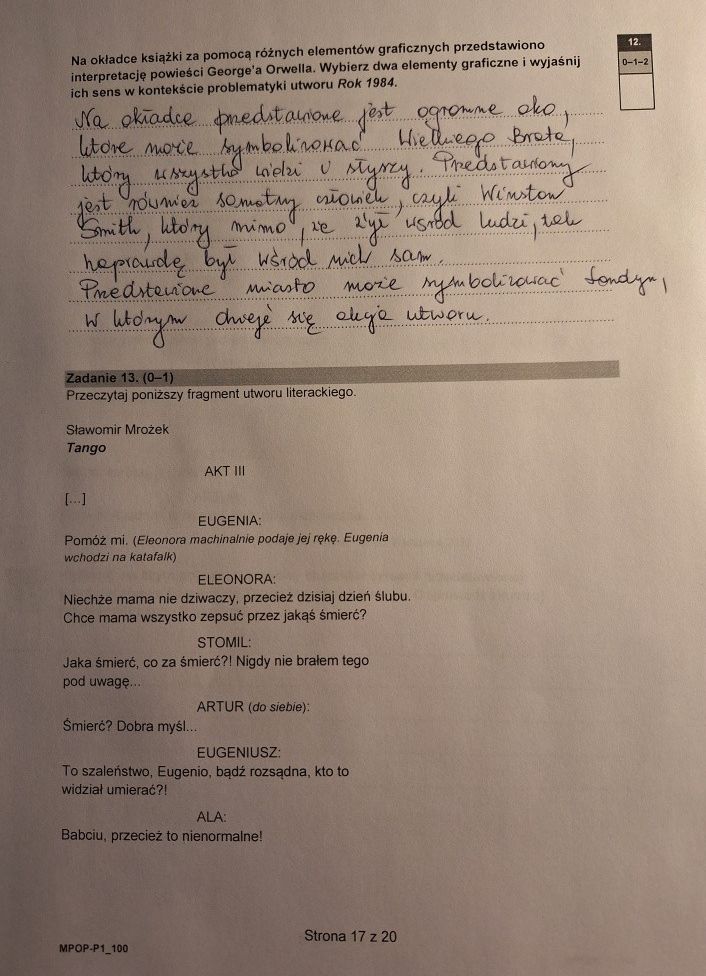 Na okładce książki za pomocą różnych elementów graficznych przedstawiono
interpretację powieści George'a Orwella. Wybierz dwa elementy graficzne i wyjaśnij
ich sens w kontekście problematyki utworu Rok 1984.
12.
0–1–2
Na okładce przedstawione jest ogromne oko,
które może symbolizować Wielkiego Brata,
który wszystko widzi i słyszy. Przedstawiony
jest również samotny człowiek, czyli Winston
Smith, który mimo, że żył wśród ludzi, tak
naprawdę był wśród nich sam.
Przedstawione miasto może symbolizować Londyn,
w którym dzieje się akcja utworu.
Zadanie 13. (0–1)
Przeczytaj poniższy fragment utworu literackiego.
Sławomir Mrożek
Tango
AKT III
[...]
EUGENIA:
Pomóż mi. (Eleonora machinalnie podaje jej rękę. Eugenia
wchodzi na katafalk)
ELEONORA:
Niechże mama nie dziwaczy, przecież dzisiaj dzień ślubu.
Chce mama wszystko zepsuć przez jakąś śmierć?
STOMIL:
Jaka śmierć, co za śmierć?! Nigdy nie brałem tego
pod uwagę...
ARTUR (do siebie):
Śmierć? Dobra myśl...
EUGENIUSZ:
To szaleństwo, Eugenio, bądź rozsądna, kto to
widział umierać?!
ALA:
Babciu, przecież to nienormalne!
Strona 17 z 20
MPOP-P1_100